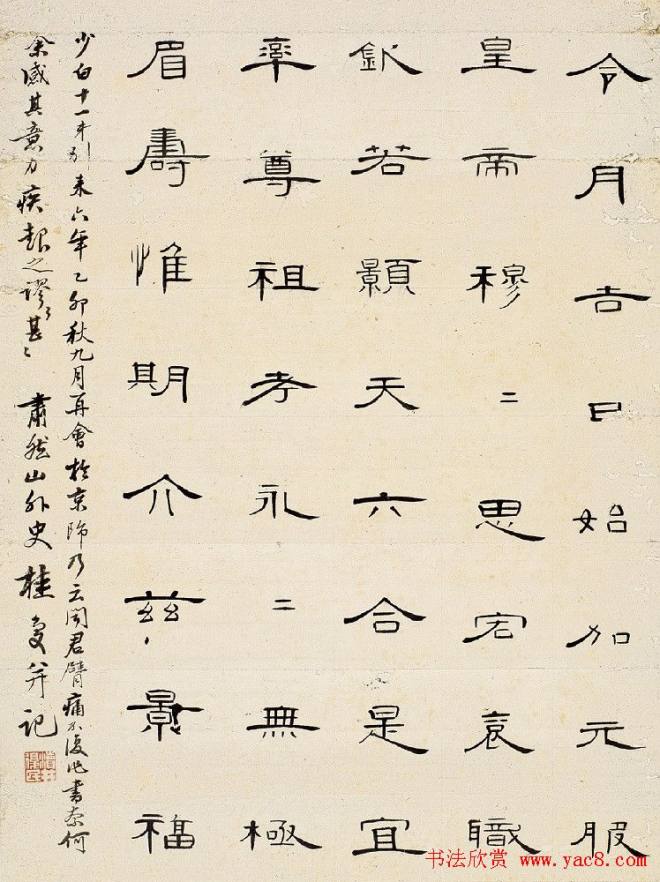 令月吉日始加元服
皇帝穆二思宏衮職
欽若顥天六合是宜
率尊祖考永二無極
眉壽惟期介茲景福
少白十一弟別来六年乙卯秋九月再會於京師乃云聞君臂痛不復作書奈何
余感其意力疾報之謬々甚々 肅然山外史桂馥并記
书法欣赏 www.yac8.com